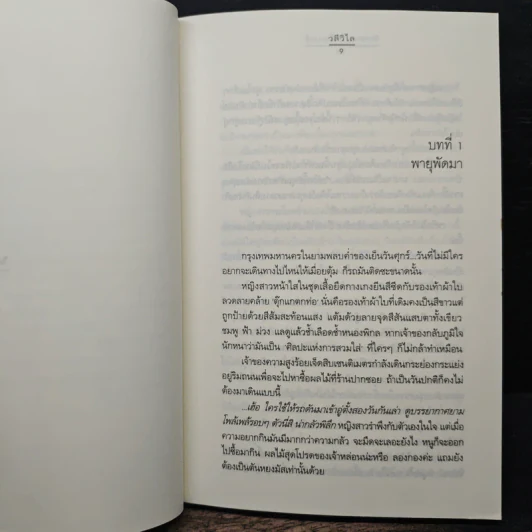 วสีวิไล
9
บทที่ 1
พายุพัดมา
กรุงเทพมหานครในยามพลบค่ำของเย็นวันศุกร์...วันที่ไม่มีใคร
อยากจะเดินทางไปไหนให้เมื่อยตุ้ม ก็รถมันติดซะขนาดนั้น
หญิงสาวหน้าใสในชุดเสื้อยืดกางเกงยีนสีซีดกับรองเท้าผ้าใบ
ลวดลายคล้าย ‘ตุ๊กแกตกท่อ’ นั่นคือรองเท้าผ้าใบที่เดิมคงเป็นสีขาวแต่
ถูกป้ายด้วยสีส้มสะท้อนแสง แต้มด้วยลายจุดสีสันแสบตาทั้งเขียว
ชมพู ฟ้า ม่วง แลดูแล้วช้ำเลือดช้ำหนองพิกล หากเจ้าของกลับภูมิใจ
นักหนาว่ามันเป็น ‘ศิลปะแห่งการสวมใส่’ ที่ใครๆ ก็ไม่กล้าทำเหมือน
เจ้าของความสูงร้อยเจ็ดสิบเซนติเมตรกำลังเดินกระย่องกระแย่ง
อยู่ริมถนนเพื่อจะไปหาซื้อผลไม้ที่ร้านปากซอย ถ้าเป็นวันปกติก็คงไม่
ต้องมาเดินแบบนี้
...เฮ้อ ใครใช้ให้รถดันมาเข้าอู่ตั้งสองวันกันเล่า ดูบรรยากาศยาม
โพล้เพล้รอบๆ ตัวนี่สิ น่ากลัวพิลึก หญิงสาวรำพึงกับตัวเองในใจ แต่เมื่อ
ความอยากกินมันมีมากกว่าความกลัว จะมืดจะเลอะยังไง หนูก็จะออก
ไปซื้อมากิน ผลไม้สุดโปรดของเจ้าหล่อนน่ะหรือ ลองกองค่ะ แถมยัง
ต้องเป็นตันหยงมัสเท่านั้นด้วย